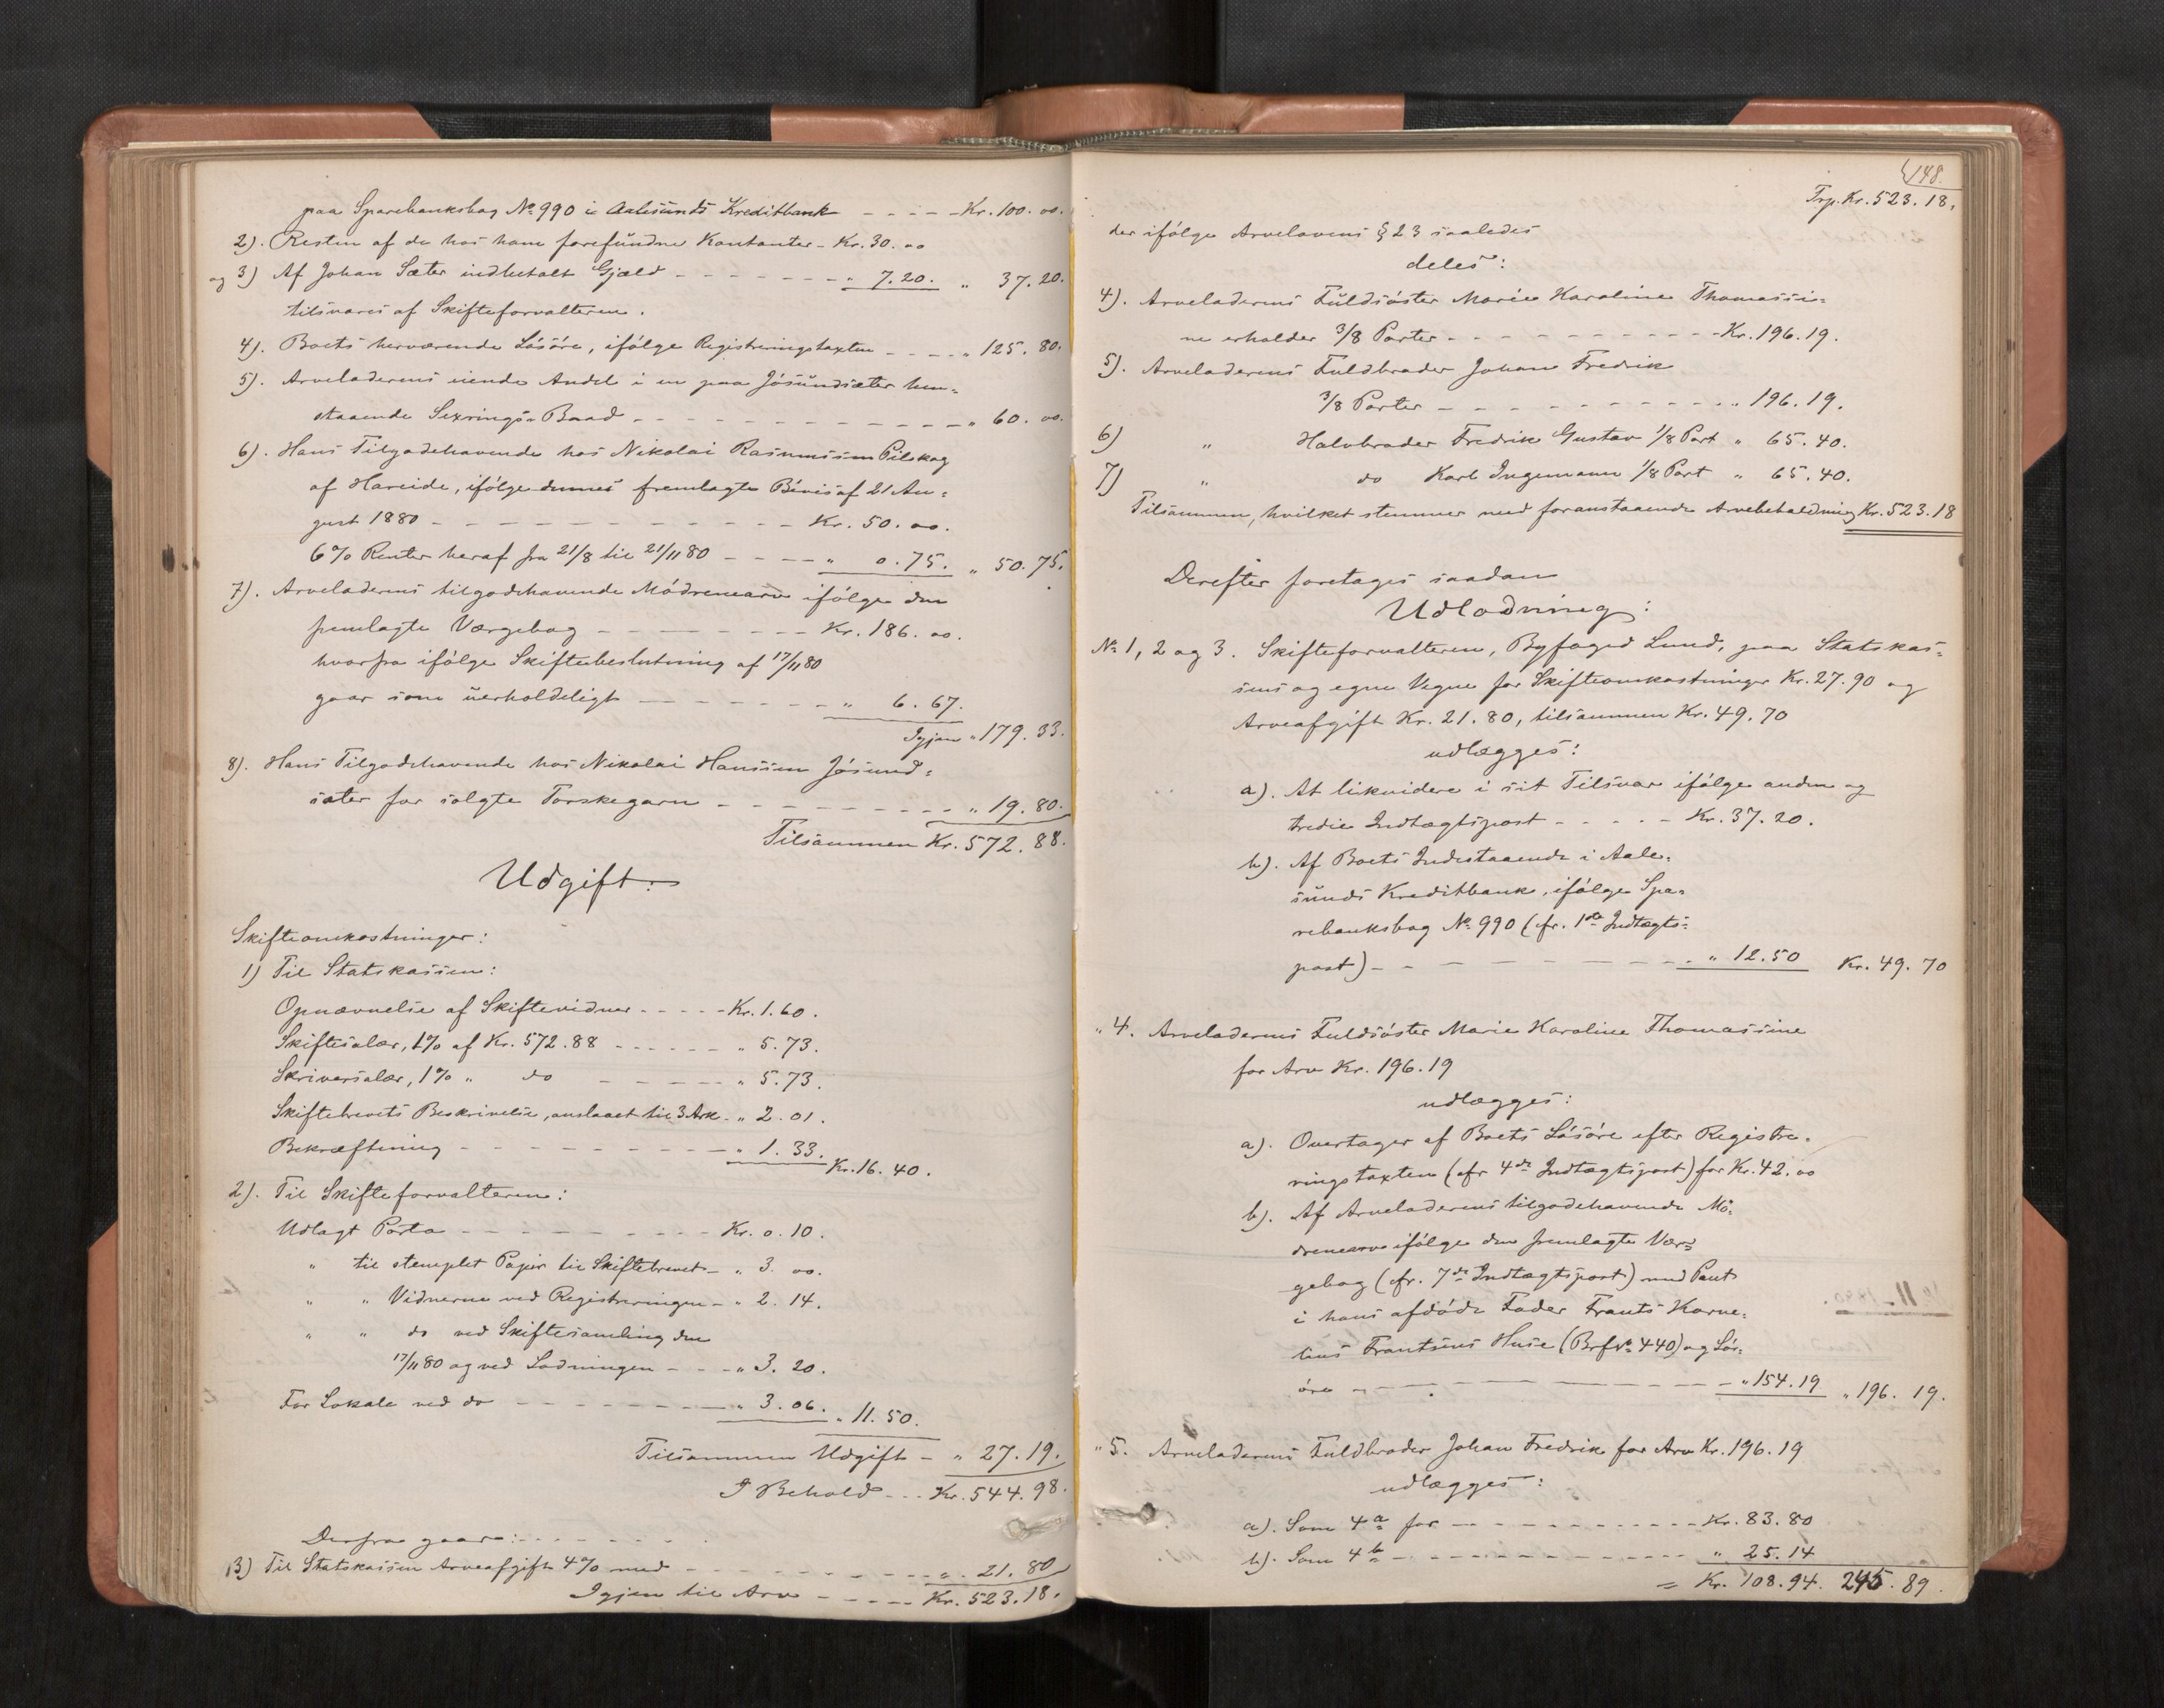 paa Sparebanksbog No 990 i Aalesunds Kreditbank - - - - Kr. 100. 00.
2). Resten af de hos ham forefundne Kontanter - Kr. 30. 00
og 3) Af Johan Sæter indbetalt Gjæld - - - - - - - " 7. 20. " 37. 20.
tilsvares af Skifteforvalteren.
4). Boets herværende Løsøre, ifølge Registreringstaxten - - - - " 125. 80.
5). Arveladerens eiende Andel i en paa Jøsundsæter hen-
staaende Sexrings-Baad - - - - - - - - - - - " 60. 00.
6). Hans Tilgodehavende hos Nikolai Rasmussen Pilskog
af Hareide, ifølge dennes fremlagte Bevis af 21 Au-
gust 1880 - - - - - - - - - - - - Kr. 50. 00.
6% Renter heraf fra 21/8 til 21/11 80 - - - - " 0. 75. " 50. 75.
7). Arveladerens tilgodehavende Mødrenearv ifølge den
fremlagte Værgebog - - - - - - - - Kr. 186. 00.
hvorfra ifølge Skiftebeslutning af 17/11 80
gaar som uerholdeligt - - - - - - - " 6. 67.
Igjen " 179. 33.
8). Hans Tilgodehavende hos Nikolai Hanssen Jøsund-
sæter for solgte Torskegarn - - - - - - - - - " 19. 80.
Tilsammen Kr. 572. 88.
Udgift:
Skifteomkostninger:
1) Til Statskassen:
Opnævnelse af Skiftevidner - - - - - Kr. 1. 60.
Skiftesalær, 1% af Kr. 572. 88 - - - - - - " 5. 73.
Skriversalær, 1% " do - - - - - " 5. 73.
Skiftebrevets Beskrivelse, anslaaet til 3 Ark - " 2. 01.
Bekræftning - - - - - - - - - - " 1. 33.
Kr. 16. 40.
2). Til Skifteforvalteren:
Udlagt Porto - - - - - - - - - Kr. 0. 10.
" til stemplet Papir til Skiftebrevet - " 3. 00.
" " Vidnerne ved Registreringen - " 2. 14.
" " do ved Skiftesamling den
17/11 80 og ved Lodningen - - - " 3. 20.
For Lokale ved do - - - - - - - - " 3. 06. " 11. 50.
Tilsammen Udgift - " 27. 19.
I Behold - - - Kr. 544. 98.
Derfra gaar: - - - - - - -
3) Til Statskassen Arveafgift 4% med - - - - - - - - - " 21. 80
Igjen til Arv - - - - - Kr. 523. 18.
148.
Trp. Kr. 523. 18.
der ifølge Arvelovens § 23 saaledes
deles:
4). Arveladerens Fuldsøster Marie Karoline Thomassi-
ne erholder 3/8 Parter - - - - - - - - - - - Kr. 196. 19.
5). Arveladerens Fuldbroder Johan Fredrik
3/8 Parter - - - - - - - - - - - " 196. 19.
6) " Halvbroder Fredrik Gustav 1/8 Part " 65. 40.
7) " do Karl Ingemann 1/8 Part " 65. 40.
Tilsammen, hvilket stemmer med foranstaaende Arvebeholdning Kr. 523. 18
Derefter foretages saadan
Udlodning:
No 1, 2 og 3. Skifteforvalteren, Byfoged Lund, paa Statskas-
sens og egne Vegne for Skifteomkostninger Kr. 27. 90 og
Arveafgift Kr. 21. 80, tilsammen Kr. 49. 70
udlægges:
a). At likvidere i sit Tilsvar ifølge anden og
tredie Indtægtspost - - - - - Kr. 37. 20.
b). Af Boets Indestaaende i Aale-
sunds Kreditbank, ifølge Spa-
rebanksbog No 990 (cfr. 1ste Indtægts-
post) - - - - - - - - - - " 12. 50 Kr. 49. 70
" 4. Arveladerens Fuldsøster Marie Karoline Thomassine
for Arv Kr. 196. 19
udlægges:
a). Overtager af Boets Løsøre efter Registre-
ringstaxten (cfr 4de Indtægtspost) for Kr. 42. 00
b). Af Arveladerens tilgodehavende Mø-
drenearv ifølge den fremlagte Vær-
gebog (cfr. 7de Indtægtspost) med Pant
i hans afdøde Fader Frants Korne-
lius Frantsens Huse (Brfno 440) og Løs-
øre - - - - - - - - - - - " 154. 19 " 196. 19.
" 5. Arveladerens Fuldbroder Johan Fredrik for Arv Kr. 196. 19
udlægges:
a). Som 4 a for - - - - - - - - - - - Kr. 83. 80
b). Som 4 b - - - - - - - - - - - - " 25. 14
= Kr. 108. 94. 245. 89.